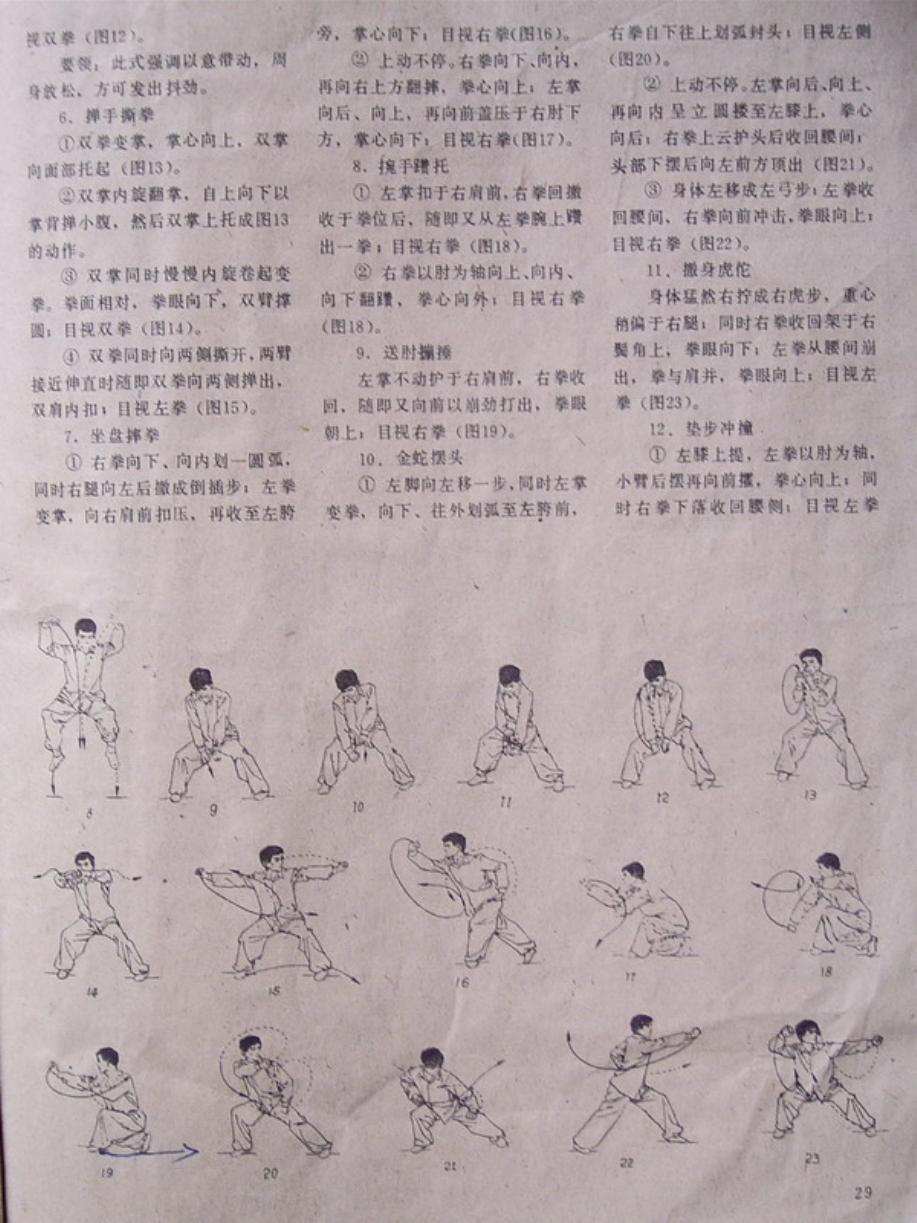 视双拳（图12）。
要领：此式强调以意带动，周
身放松，方可发出抖劲。
6．掸手撕拳
①双拳变掌，掌心向上，双掌
向面部托起（图13）。
②双掌内旋翻掌，自上向下以
掌背掸小腹，然后双掌上托成图13
的动作。
③ 双掌同时慢慢内旋卷起变
拳。拳面相对，拳眼向下，双臂撑
圆；目视双拳（图14）。
④ 双拳同时向两侧撕开，两臂
接近伸直时随即双拳向两侧弹出，
双肩内扣；目视左拳（图15）。
7．坐盘摔拳
① 右拳向下、向内划一圆弧，
同时右腿向左后撤成倒插步；左拳
变掌，向右肩前扣压，再收至左胯
旁，掌心向下；目视右拳（图16）。
② 上动不停。右拳向下、向内，
再向右上方翻摔，拳心向上；左掌
向后、向上，再向前盖压于右肘下
方，掌心向下；目视右拳（图17）。
8．手躜托
① 左掌扣于右肩前，右拳回撤
收于拳位后，随即又从左拳腕上躜
出一拳；目视右拳（图18）。
② 右拳以肘为轴向上、向内、
向下翻躜，拳心向外；目视右拳
（图18）。
9．送肘捶
左掌不动护于右肩前，右拳收
回，随即又向前以崩劲打出，拳眼
朝上；目视右拳（图19）。
10．金蛇摆头
① 左脚向左移一步，同时左掌
变拳，向下、往外划弧至左胯前，
右拳自下往上划弧封头；目视左侧
（图20）。
② 上动不停。左掌向后、向上、
再向内呈立圆搂至左膝上，拳心
向后；右拳上云护头后收回腰间；
头部下摆后向左前方顶出（图21）。
③ 身体左移成左弓步；左拳收
回腰间，右拳向前冲击，拳眼向上；
目视右拳（图22）。
11．撤身虎坨
身体猛然右拧成右虎步，重心
稍偏于右腿；同时右拳收回架于右
鬓角上，拳眼向下；左拳从腰间崩
出，拳与肩并，拳眼向上；目视左
拳（图23）。
12．垫步冲撞
① 左膝上提，左拳以肘为轴，
小臂后摆再向前，拳心向上；同
时右拳下落收回腰侧；目视左拳
8
9
10
11
12
13
14
15
16
17
18
19
20
21
22
23
29